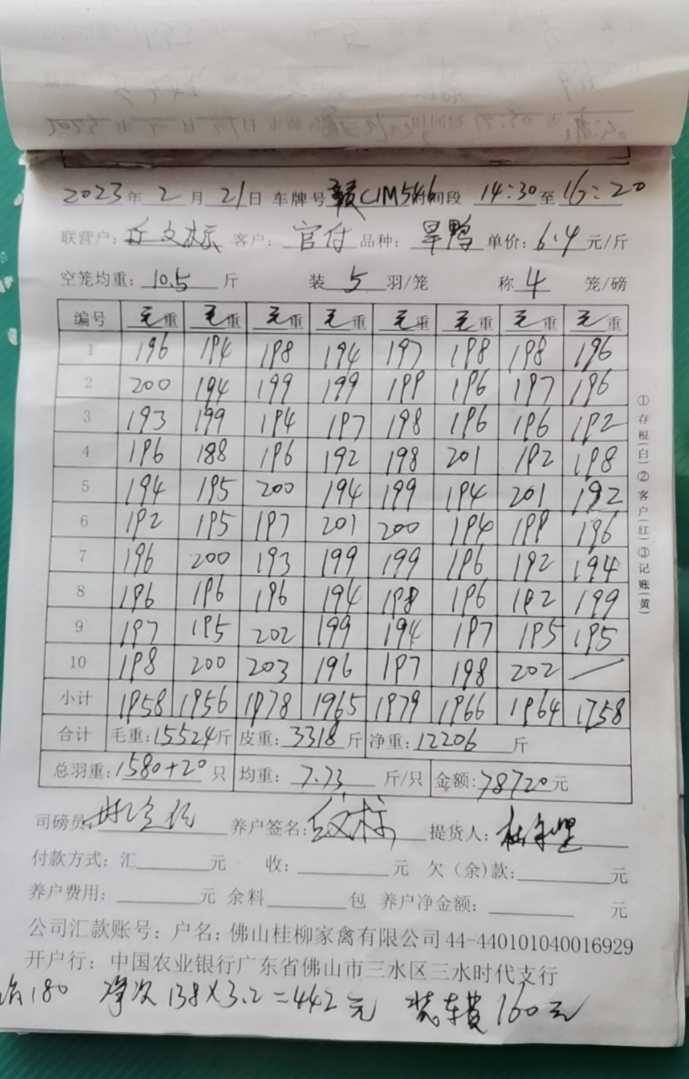 2023年2月21日 车牌号 赣C1M546 时间段 14:30至16:20
联营户: 丘文标 客户: 官付 品种: 旱鸭 单价: 6.4元/斤
空笼均重: 10.5 斤 装 5 羽/笼 称 4 笼/磅
编号 毛重 毛重 毛重 毛重 毛重 毛重 毛重 毛重
1 196 194 198 194 197 198 198 196
2 200 194 199 199 199 196 197 196
3 193 199 194 197 198 196 196 192
4 196 188 196 192 198 201 192 198
5 194 195 200 194 199 194 201 192
6 192 195 197 201 200 194 199 196
7 196 200 193 199 199 196 192 194
8 196 196 196 194 198 196 192 199
9 197 195 202 199 194 197 195 195
10 198 200 203 196 197 198 202 —
小计 1958 1956 1978 1965 1979 1966 1964 1758
合计 毛重:15524斤 皮重:3318斤 净重:12206 斤
总羽重:1580+20 只 均重: 7.73 斤/只 金额:78720元
司磅员: 养户签名: 丘文标 提货人:
付款方式: 汇 元 收: 元 欠(余)款: 元
养户费用: 元 余料 包 养户净金额: 元
公司汇款账号: 户名: 佛山桂柳家禽有限公司 44-440101040016929
开户行: 中国农业银行广东省佛山市三水区三水时代支行
180 净次 138×3.2=442元 装车费160元
①存根(白)②客户(红)③记账(黄)